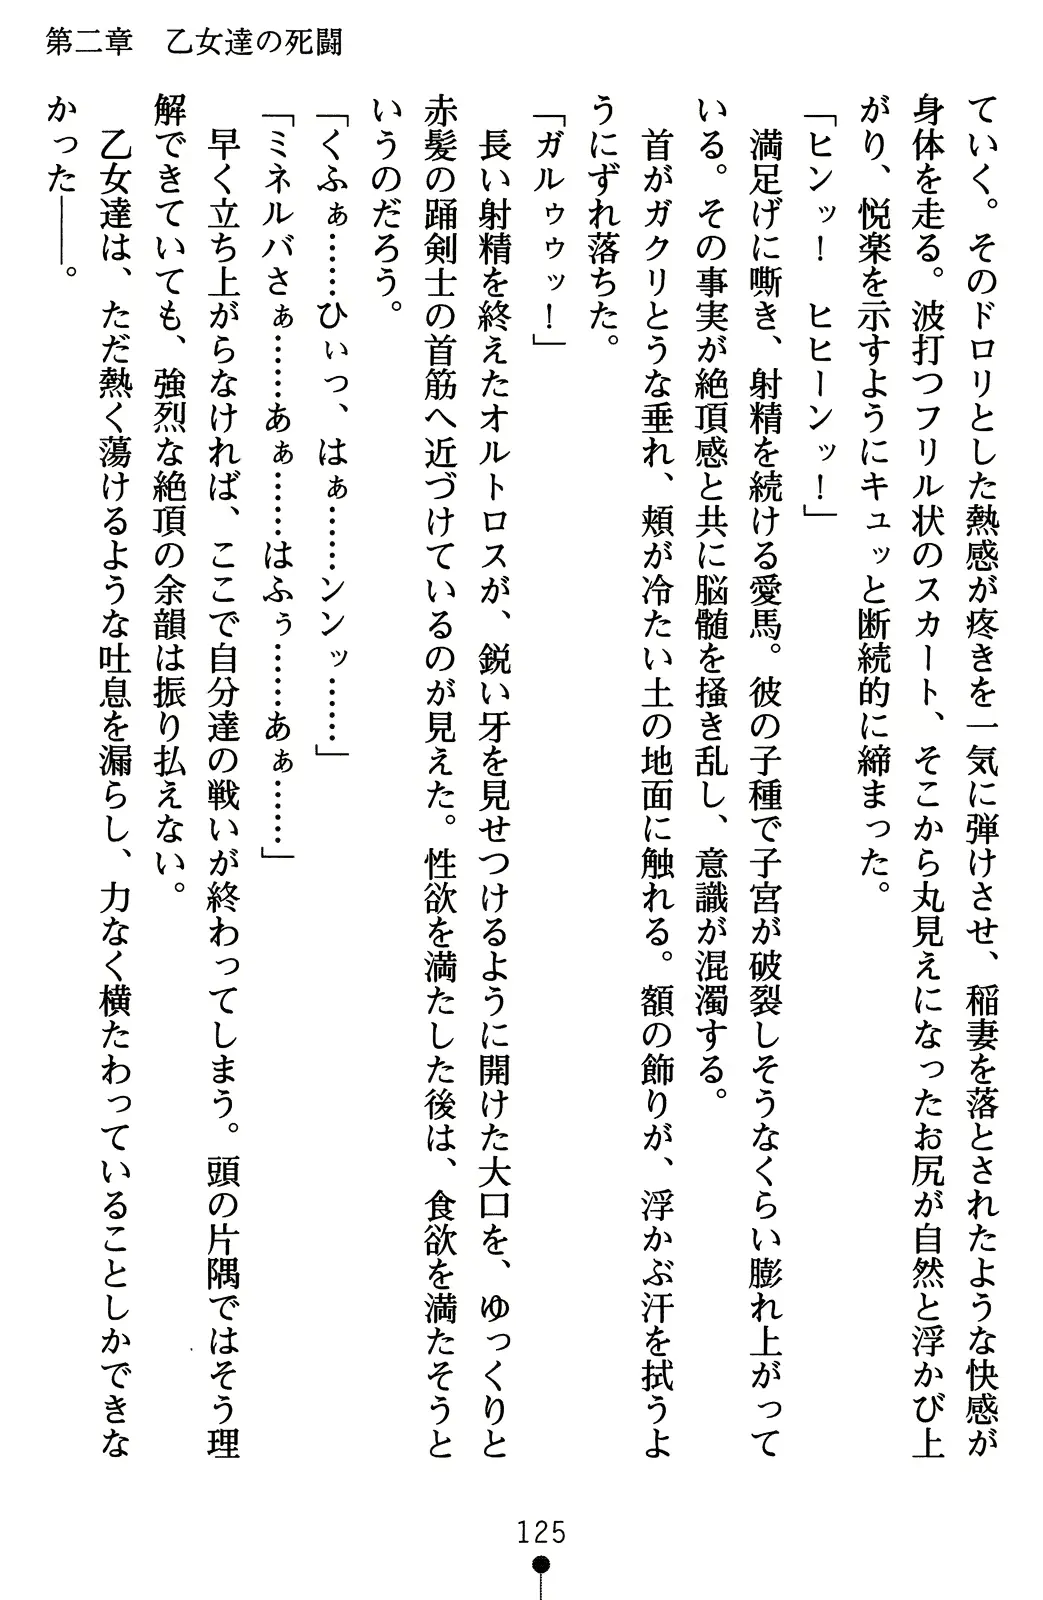 第二章　乙女達の死闘
ていく。そのドロリとした熱感が疼きを一気に弾けさせ、稲妻を落とされたような快感が
身体を走る。波打つフリル状のスカート、そこから丸見えになったお尻が自然と浮かび上
がり、悦楽を示すようにキュッと断続的に締まった。
「ヒンッ！　ヒヒーンッ！」
満足げに嘶き、射精を続ける愛馬。彼の子種で子宮が破裂しそうなくらい膨れ上がって
いる。その事実が絶頂感と共に脳髄を掻き乱し、意識が混濁する。
首がガクリとうな垂れ、頬が冷たい土の地面に触れる。額の飾りが、浮かぶ汗を拭うよ
うにずれ落ちた。
「ガルゥゥッ！」
長い射精を終えたオルトロスが、鋭い牙を見せつけるように開けた大口を、ゆっくりと
赤髪の踊剣士の首筋へ近づけているのが見えた。性欲を満たした後は、食欲を満たそうと
いうのだろう。
「くふぁ……ひぃっ、はぁ……ンンッ……」
「ミネルバさぁ……あぁ……はふぅ……あぁ……」
早く立ち上がらなければ、ここで自分達の戦いが終わってしまう。頭の片隅ではそう理
解できていても、強烈な絶頂の余韻は振り払えない。
乙女達は、ただ熱く蕩けるような吐息を漏らし、力なく横たわっていることしかできな
かった――。
125